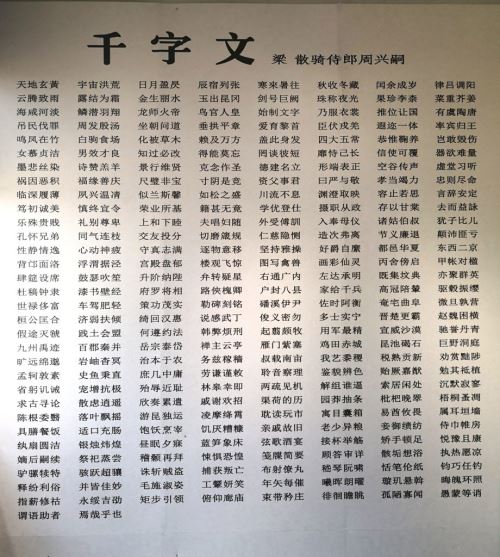 千字文
梁 散骑侍郎周兴嗣
天地玄黄 宇宙洪荒 日月盈昃 辰宿列张 寒来暑往 秋收冬藏 闰余成岁 律吕调阳
云腾致雨 露结为霜 金生丽水 玉出昆冈 剑号巨阙 珠称夜光 果珍李柰 菜重芥姜
海咸河淡 鳞潜羽翔 龙师火帝 鸟官人皇 始制文字 乃服衣裳 推位让国 有虞陶唐
吊民伐罪 周发殷汤 坐朝问道 垂拱平章 爱育黎首 臣伏戎羌 遐迩一体 率宾归王
鸣凤在竹 白驹食场 化被草木 赖及万方 盖此身发 四大五常 恭惟鞠养 岂敢毁伤
女慕贞洁 男效才良 知过必改 得能莫忘 罔谈彼短 靡恃己长 信使可覆 器欲难量
墨悲丝染 诗赞羔羊 景行维贤 克念作圣 德建名立 形端表正 空谷传声 虚堂习听
祸因恶积 福缘善庆 尺璧非宝 寸阴是竞 资父事君 曰严与敬 孝当竭力 忠则尽命
临深履薄 夙兴温凊 似兰斯馨 如松之盛 川流不息 渊澄取映 容止若思 言辞安定
笃初诚美 慎终宜令 荣业所基 籍甚无竟 学优登仕 摄职从政 存以甘棠 去而益咏
乐殊贵贱 礼别尊卑 上和下睦 夫唱妇随 外受傅训 入奉母仪 诸姑伯叔 犹子比儿
孔怀兄弟 同气连枝 交友投分 切磨箴规 仁慈隐恻 造次弗离 节义廉退 颠沛匪亏
性静情逸 心动神疲 守真志满 逐物意移 坚持雅操 好爵自縻 都邑华夏 东西二京
背邙面洛 浮渭据泾 宫殿盘郁 楼观飞惊 图写禽兽 画彩仙灵 丙舍傍启 甲帐对楹
肆筵设席 鼓瑟吹笙 升阶纳陛 弁转疑星 右通广内 左达承明 既集坟典 亦聚群英
杜稿钟隶 漆书壁经 府罗将相 路侠槐卿 户封八县 家给千兵 高冠陪辇 驱毂振缨
世禄侈富 车驾肥轻 策功茂实 勒碑刻铭 磻溪伊尹 佐时阿衡 奄宅曲阜 微旦孰营
桓公匡合 济弱扶倾 绮回汉惠 说感武丁 俊乂密勿 多士实宁 晋楚更霸 赵魏困横
假途灭虢 践土会盟 何遵约法 韩弊烦刑 起翦颇牧 用军最精 宣威沙漠 驰誉丹青
九州禹迹 百郡秦并 岳宗泰岱 禅主云亭 雁门紫塞 鸡田赤城 昆池碣石 巨野洞庭
旷远绵邈 岩岫杳冥 治本于农 务兹稼穑 俶载南亩 我艺黍稷 税熟贡新 劝赏黜陟
孟轲敦素 史鱼秉直 庶几中庸 劳谦谨敕 聆音察理 鉴貌辨色 贻厥嘉猷 勉其祗植
省躬讥诫 宠增抗极 殆辱近耻 林皋幸即 两疏见机 解组谁逼 索居闲处 沉默寂寥
求古寻论 散虑逍遥 欣奏累遣 戚谢欢招 渠荷的历 园莽抽条 枇杷晚翠 梧桐蚤凋
陈根委翳 落叶飘摇 游昆独运 凌摩绛霄 耽读玩市 寓目囊箱 易輶攸畏 属耳垣墙
具膳餐饭 适口充肠 饱饫烹宰 饥厌糟糠 亲戚故旧 老少异粮 妾御绩纺 侍巾帷房
纨扇圆洁 银烛炜煌 昼眠夕寐 蓝笋象床 弦歌酒宴 接杯举觞 矫手顿足 悦豫且康
嫡后嗣续 祭祀蒸尝 稽颡再拜 悚惧恐惶 笺牒简要 顾答审详 骸垢想浴 执热愿凉
驴骡犊特 骇跃超骧 诛斩贼盗 捕获叛亡 布射僚丸 嵇琴阮啸 恬笔伦纸 钧巧任钓
释纷利俗 并皆佳妙 毛施淑姿 工颦妍笑 年矢每催 曦晖朗曜 璇玑悬斡 晦魄环照
指薪修祜 永绥吉劭 矩步引领 俯仰廊庙 束带矜庄 徘徊瞻眺 孤陋寡闻 愚蒙等诮
谓语助者 焉哉乎也